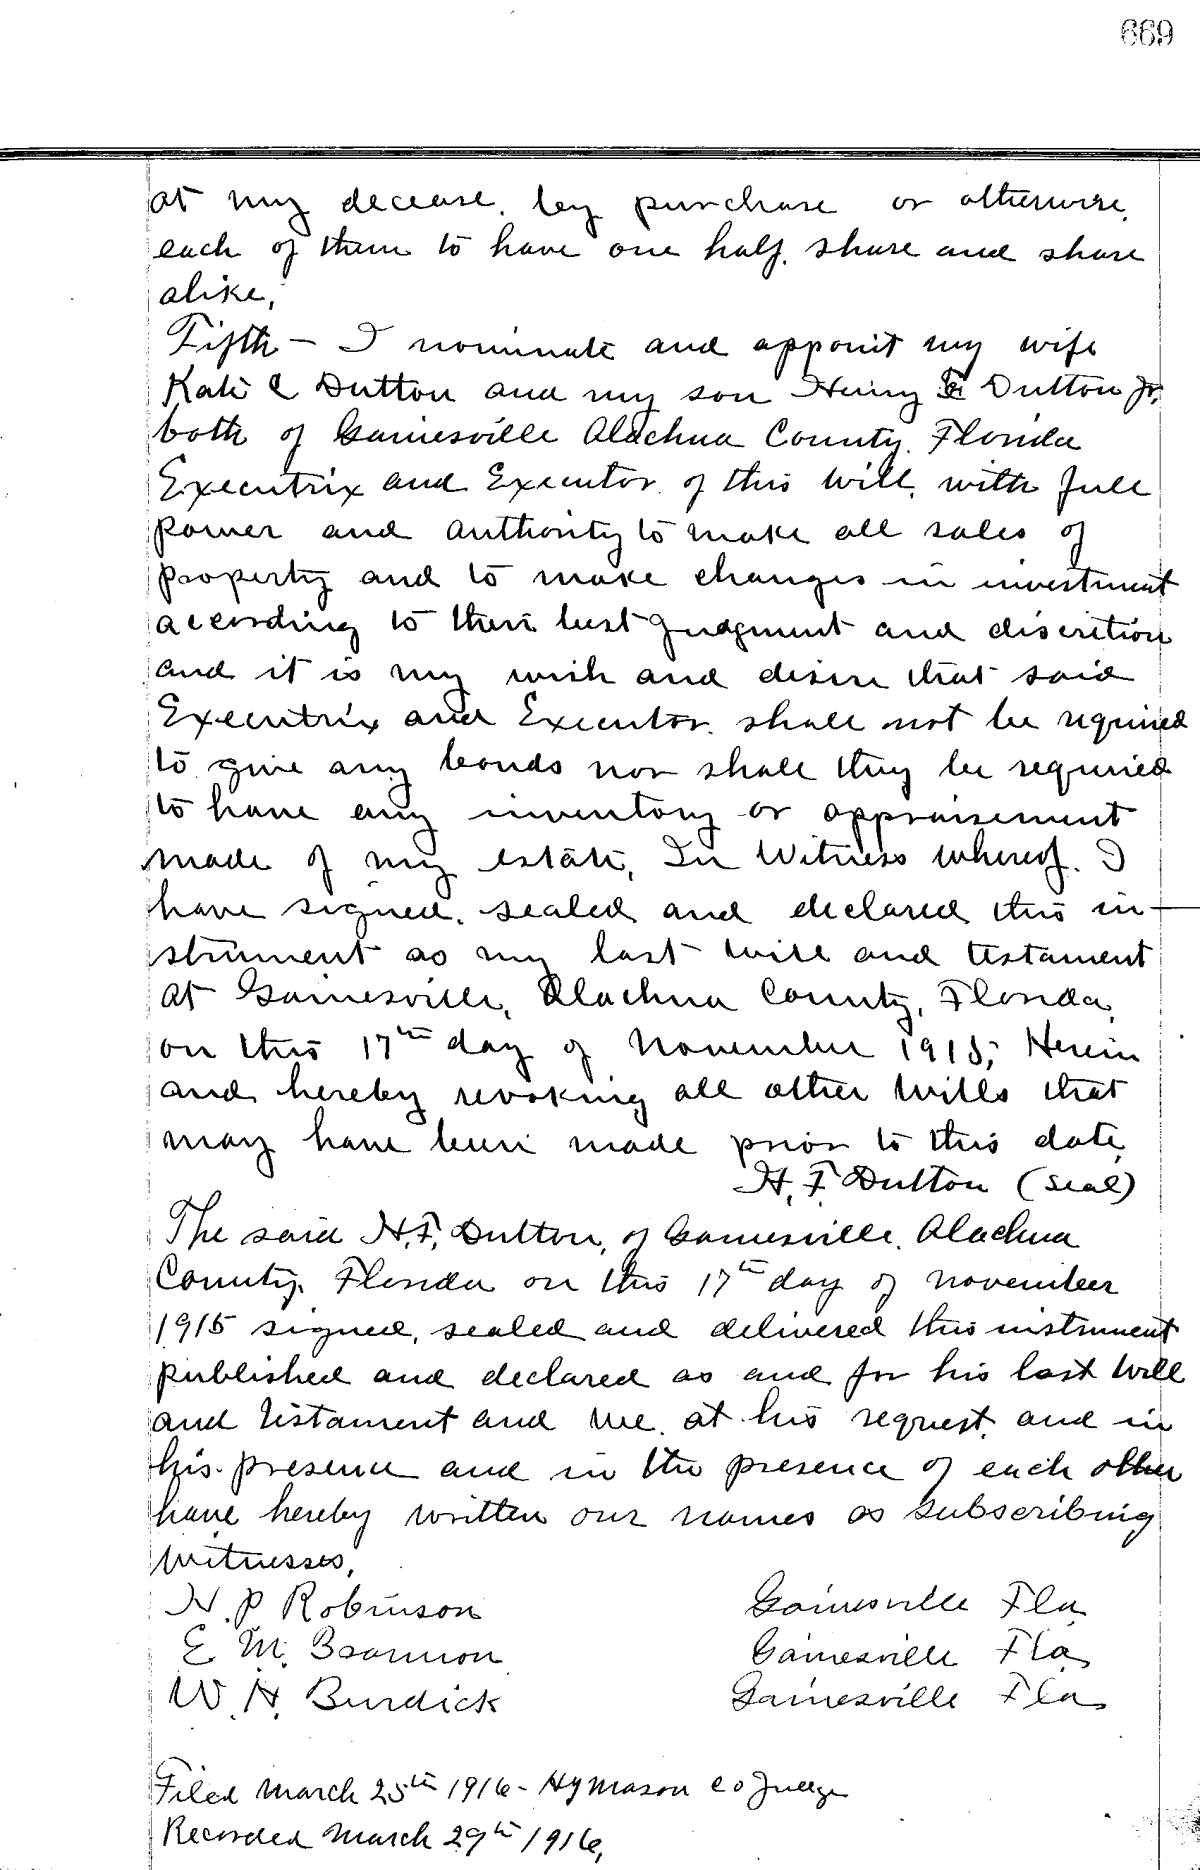 669
at my decease, by purchase or otherwise,
each of them to have one half, share and share
alike,
Fifth - I nominate and appoint my wife
Kate C Dutton and my son Henry F Dutton Jr,
both of Gainesville Alachua County, Florida
Executrix and Executor of this Will, with full
power and authority to make all sales of
property and to make changes in investment
according to their best judgment and discretion
and it is my wish and desire that said
Executrix and Executor shall not be required
to give any bonds nor shall they be required
to have any inventory or appraisement
made of my estate, In Witness whereof, I
have signed, sealed and declared this in-
strument as my last will and testament
at Gainesville, Alachua County, Florida,
on this 17th day of November 1915, Herein
and hereby revoking all other Wills that
may have been made prior to this date,
H. F. Dutton (seal)
The said H. F. Dutton, of Gainesville, Alachua
County, Florida on this 17th day of November
1915 signed, sealed and delivered this instrument
published and declared as and for his last Will
and Testament and we, at his request, and in
his presence and in the presence of each other
have hereby written our names as subscribing
witnesses,
H. P Robinson Gainesville Fla
E M. Gainesville Fla,
W. H. Burdick Gainesville Fla
Filed March 25th 1916 - H G Mason Co Judge
Recorded March 29th 1916,